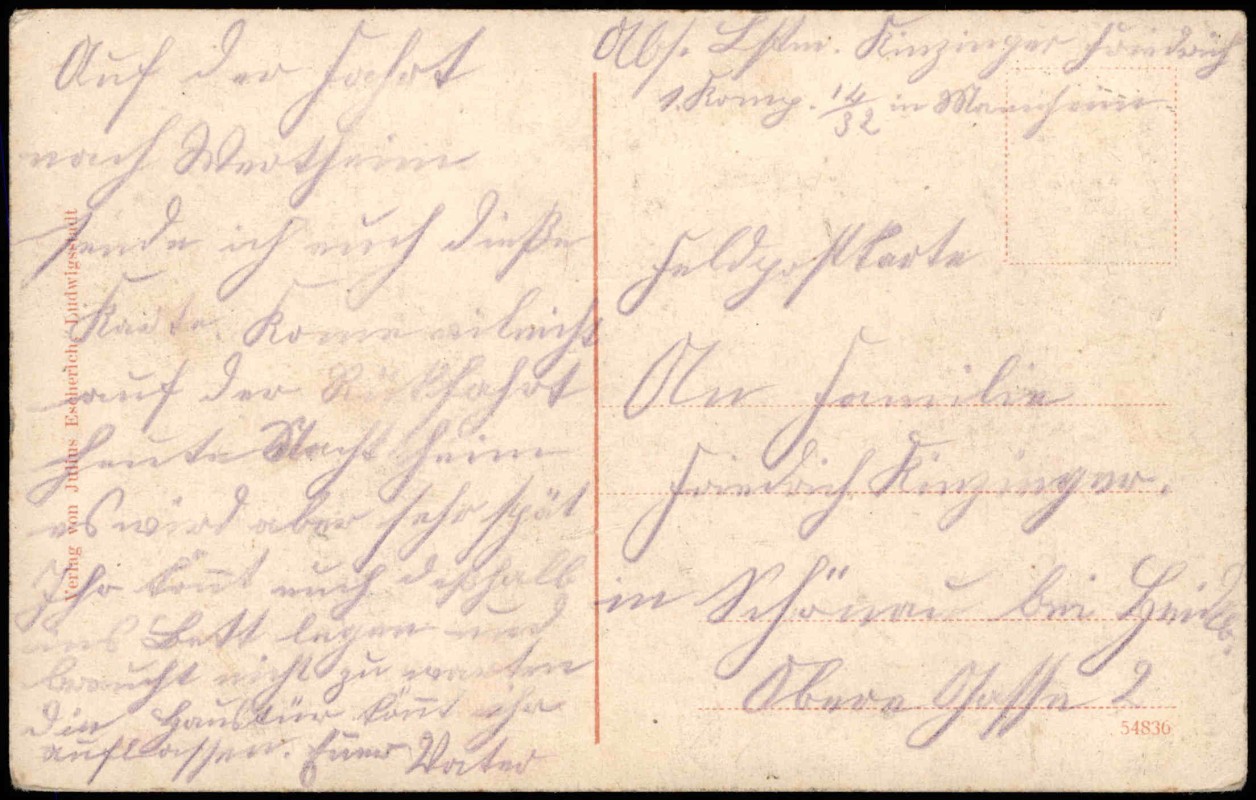 Auf der Fahrt
nach Wertheim
sende ich euch dieße
Karte. Kome vileicht
auf der Rükfahrt
heute Nacht heim
es wird aber sehr spät
Ihr kön̄t euch deßhalb
ins Bett legen und
braucht nicht zu warten
die Haustür kön̄t ihr
auflassen. Euer Vater
Verlag von Julius Escherich, Ludwigsstadt
Abs. Lstm. Kinzinger Friedrich
1. Komp. 14/32 in Mannheim
Feldpostkarte
An Familie
Friedrich Kinzinger.
in Schönau bei Heidlb.
Obere Gasse 2
54836